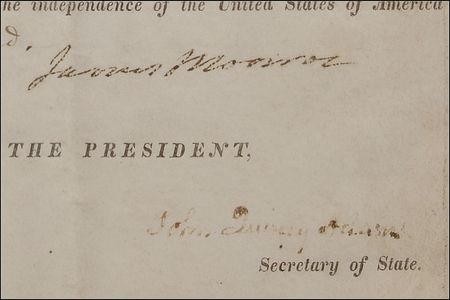 he independence of the United States of America
d.
James Monroe
THE PRESIDENT,
John Quincy Adams
Secretary of State.